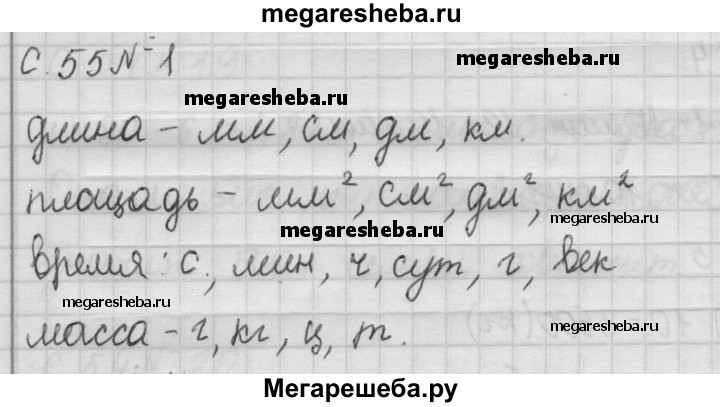 megaresheba.ru
С. 55 № 1
megaresheba.ru
megaresheba.ru
длина – мм, см, дм, км.
площадь – мм², см², дм², км²
megaresheba.ru
megaresheba.ru
время: с., мин, ч, сут, г, век
megaresheba.ru
масса – г, кг, ц, т.
Мегарешеба.ру